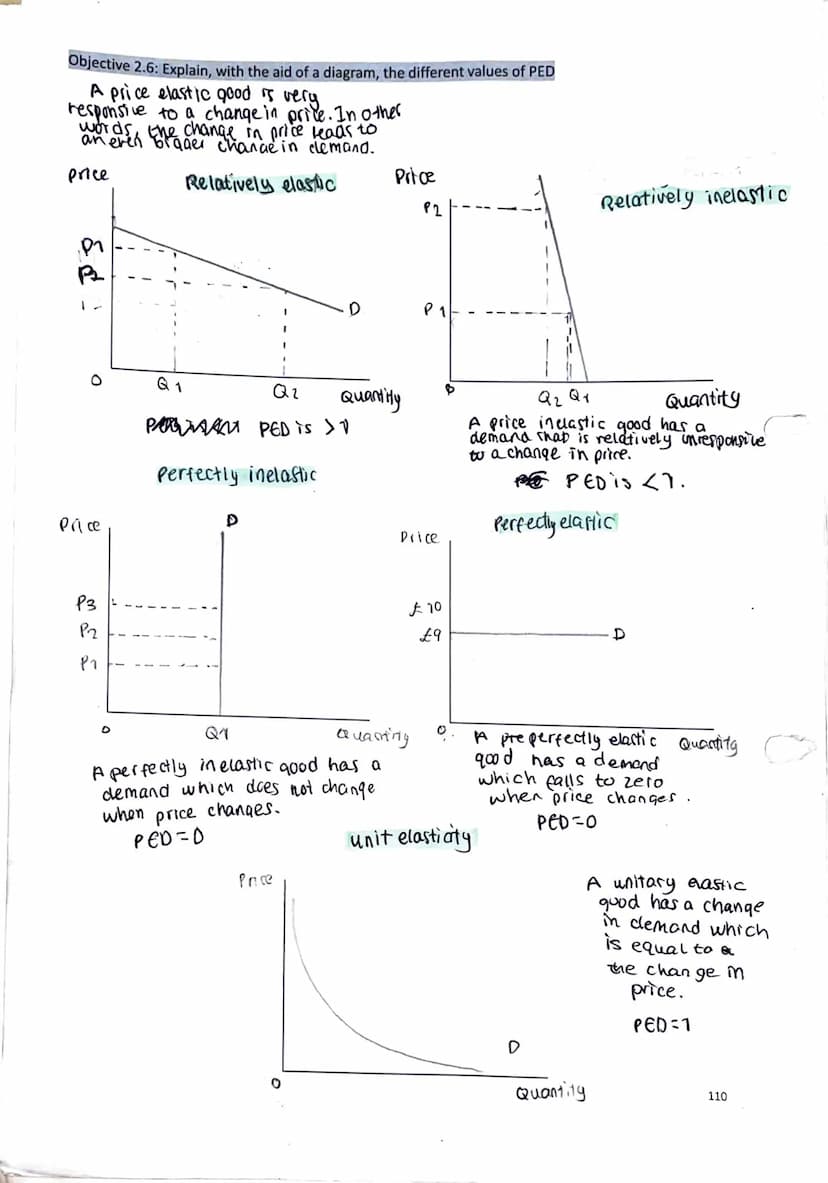 Objective 2.6: Explain, with the aid of a diagram, the different values of PED
A price elastic good is very
responsive to a change in price. In other
words, the change in price leads to
an even bigger change in demand.
Price
Relatively elastic
P1
P2
D
0
Q1
Q2
Quantity
PED is >1
Price
Relatively inelastic
P2
P1
0
Q2 Q1
Quantity
A price inelastic good has a
demand that is relatively unresponsive
to a change in price.
PED is <1.
Perfectly inelastic
Price
D
P3
P2
P1
0
Q1
Quantity
A perfectly inelastic good has a
demand which does not change
when price changes.
PED=0
Perfectly elastic
Price
£10
£9
D
0
Quantity
A pre perfectly elastic
good has a demand
which falls to zero
when price changes.
PED=0
unit elasticity
Price
D
0
Quantity
A unitary elastic
good has a change
in demand which
is equal to a
the change in
price.
PED=1
110